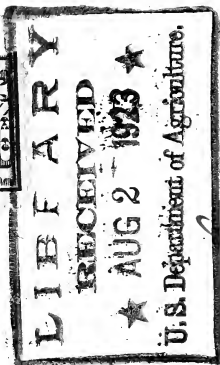 LIBRARY
RECEIVED
★ AUG 2 1923 ★
U. S. Department of Agriculture.